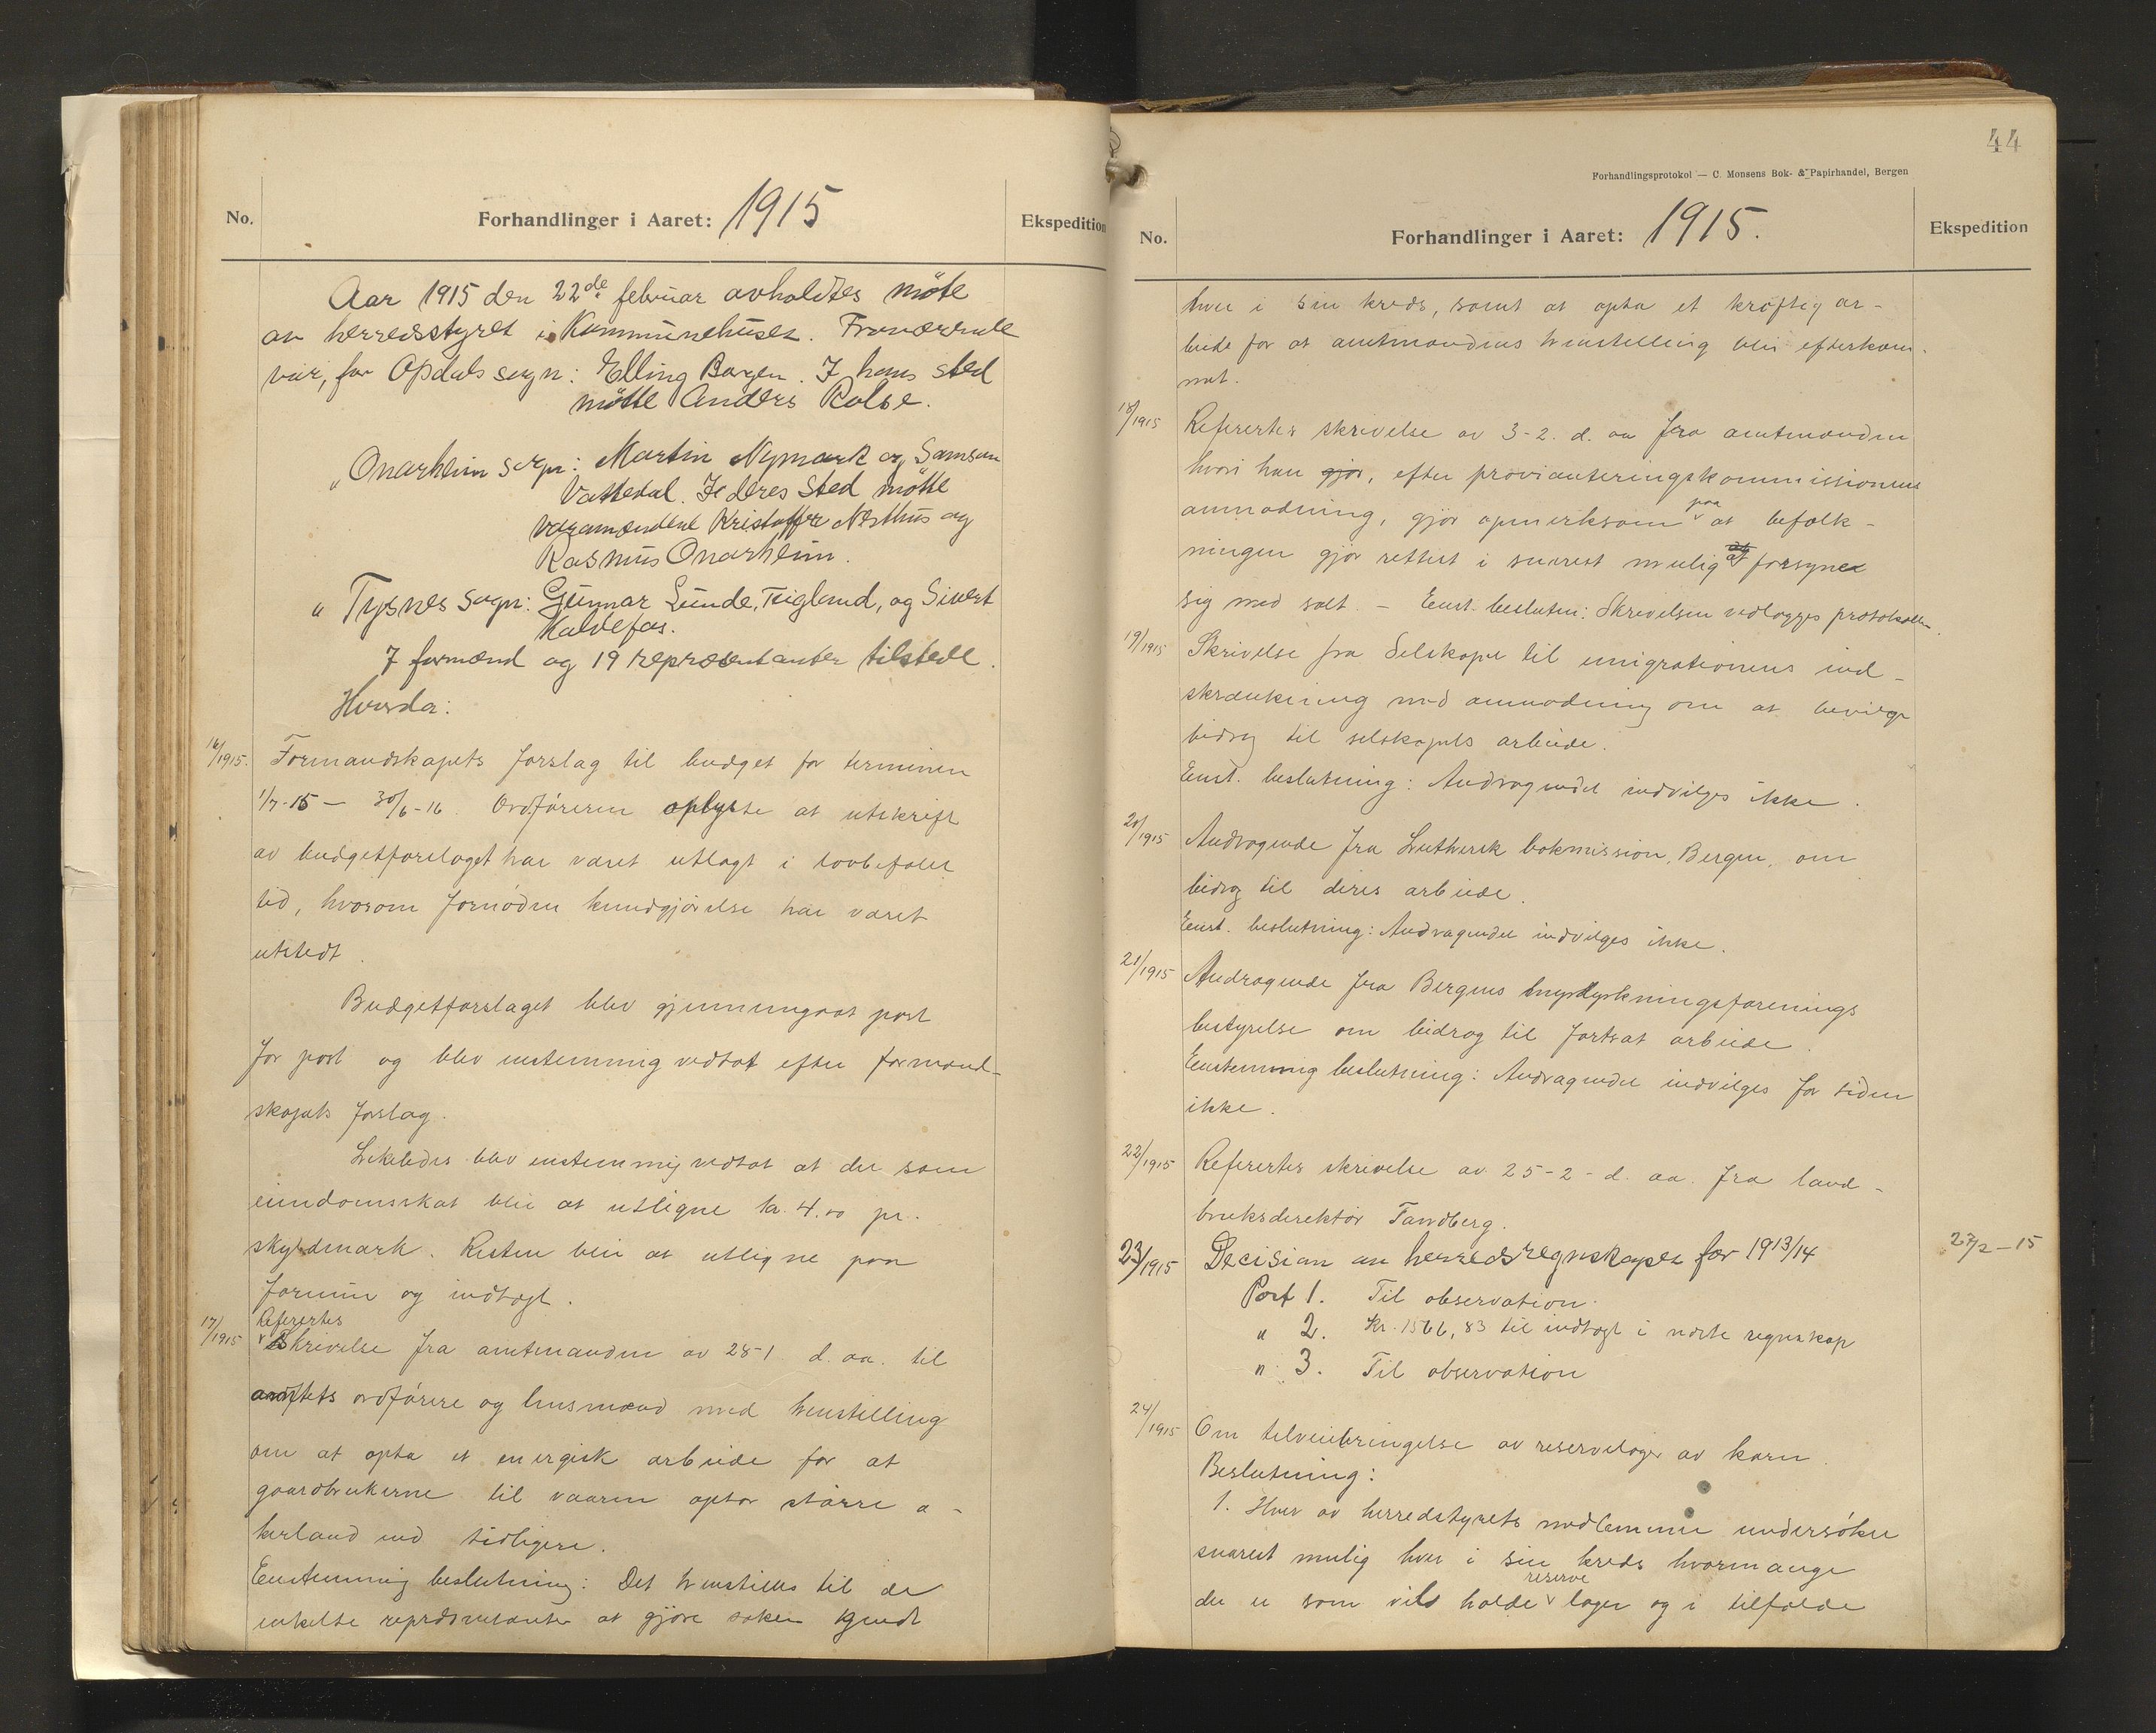 No.
Forhandlinger i Aaret: 1915
Ekspedition
Aar 1915 den 22de februar avholdtes möte
av herredsstyret i Kommunehuset. Fraværende
var, for Opdals sogn: Elling Bargen. I hans sted
mötte Anders Rolse.
„ Onarheim sogn: Martin Nymark og Samson
Vattedal. I deres sted mötte
varamændene Kristoffer Nesthus og
Rasmus Onarheim.
„ Tysnes sogn: Gunnar Lunde, Teigland, og Sivert
Kaldefos.
7 formænd og 19 repræsentanter tilstede.
Hvorda:
16/1915. Formandskapets forslag til budget for terminen
1/7-15 – 30/6-16. Ordföreren oplyste at utskrift
av budgetforslaget har været utlagt i lovbefalet
tid, hvorom fornöden kundgjörelse har været
utstedt.
Budgetforslaget blev gjennemgaat post
for post og blev enstemmig vedtat efter formand-
skapets forslag.
Likeledes blev enstemmig vedtat at der som
eiendomsskat blir at utligne kr. 4.00 pr.
skyldmark. Resten blir at utligne paa
formue og indtægt.
17/1915 Refertes
Skrivelse fra amtmanden av 28-1 d. aa. til
amtets ordförere og lensmænd med henstilling
om at opta et energisk arbeide for at
gaardbrukerne til vaaren optar större a-
kerland end tidligere.
Enstemmig beslutning: Det henstilles til de
enkelte repræsentanter at gjöre saken kjendt
44
Forhandlingsprotokol — C. Monsens Bok- & Papirhandel, Bergen
No.
Forhandlinger i Aaret: 1915.
Ekspedition
hver i sin kreds, samt at opta et kraftig ar-
beide for at amtmandens henstilling blir efterkom-
met.
18/1915 Refertes skrivelse av 3-2. d. aa fra amtmanden
hvori han gjör, efter provianteringskommissionens
anmodning, gjör opmerksom paa at befolk-
ningen gjör rettest i snarest mulig at forsyne
sig med salt. – Enst. beslutn: Skrivelsen vedlægges protokollen.
19/1915 Skrivelse fra Selskapet til emigrationens ind-
skrænkning med anmodning om at bevilge
bidrag til selskapets arbeide.
Enst. beslutning: Andragendet indvilges ikke.
20/1915 Andragende fra Luthersk bokmission, Bergen, om
bidrag til deres arbeide.
Enst. beslutning: Andragendet indvilges ikke.
21/1915 Andragende fra Bergens myrdyrkningsforenings
bestyrelse om bidrag til fortsat arbeide.
Enstemmig beslutning: Andragendet indvilges for tiden
ikke.
22/1915 Refertes skrivelse av 25-2- d. aa. fra land-
bruksdirektör Tandberg.
23/1915 Decision av herredsregnskapet for 1913/14
27/2–15
Post 1. Til observation.
„ 2. Kr. 1566,83 til indtægt i næste regnskap
„ 3. Til observation
24/1915 Om tilveiebringelse av reservelager av korn.
Beslutning:
1. Hver av herredstyrets medlemmer undersöker
snarest mulig hver i sin kreds hvormange
der er som vil holde reserve lager og i tilfælde